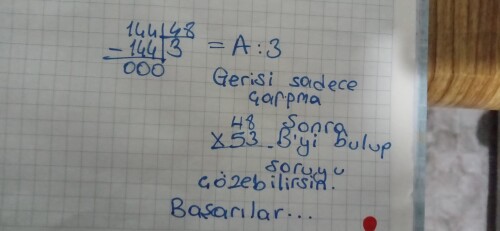 144 48
-144 3 = A:3
000
Gerisi sadece
çarpma
48 Sonra
x53 B'yi bulup
soruyu
çözebilirsin.
Başarılar...